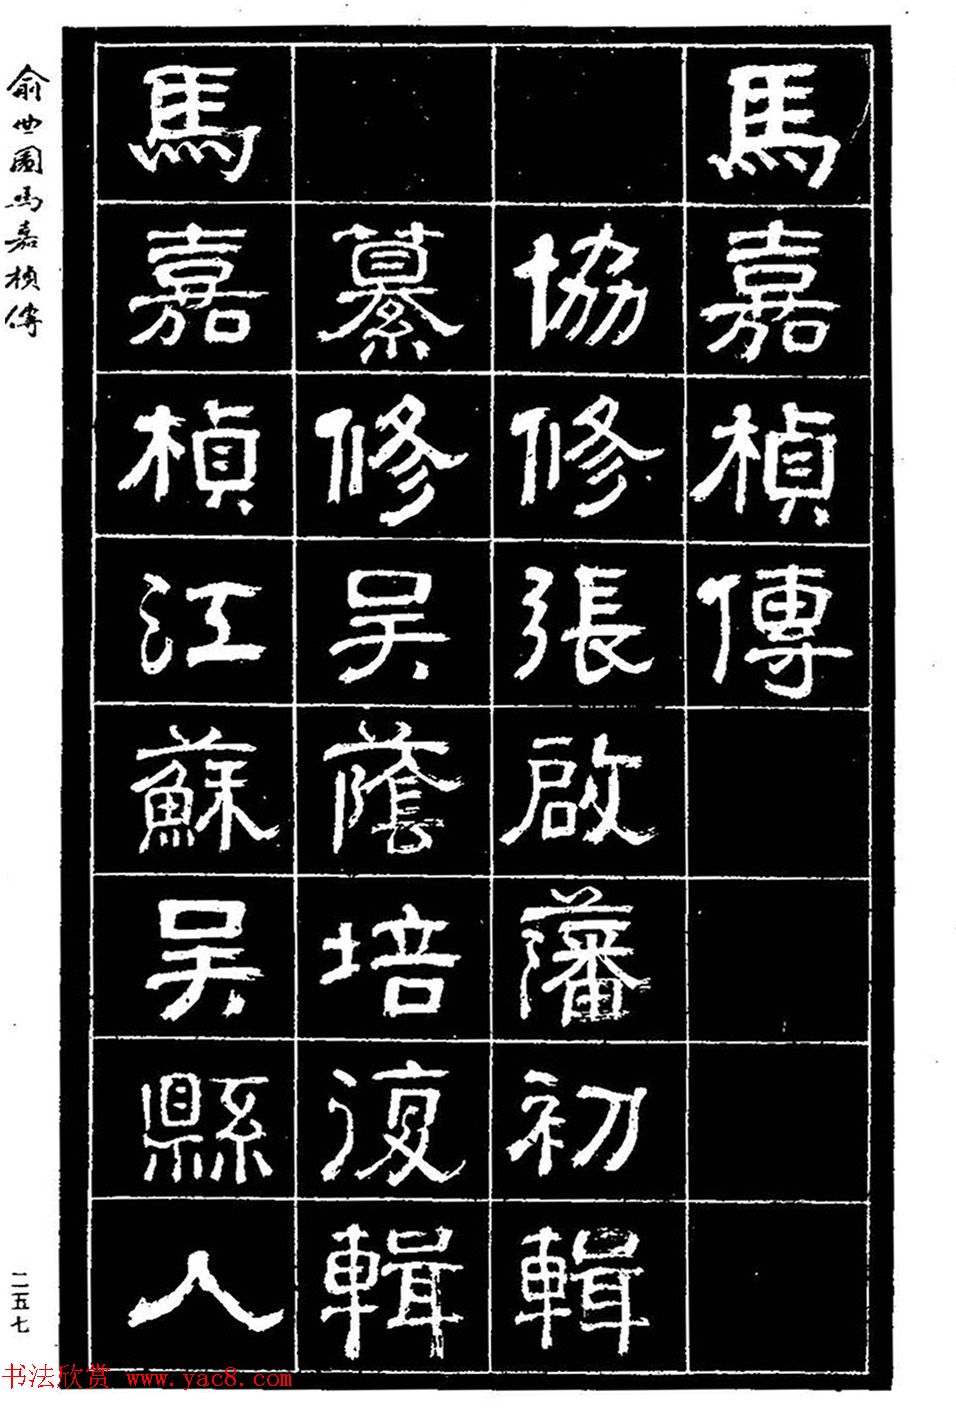 馬嘉楨傳
協修張啟藩初輯
纂修吴蔭培復輯
馬嘉楨江蘇吴縣人
俞世圖馬嘉楨傳
二五七
书法欣赏 www.yac8.com